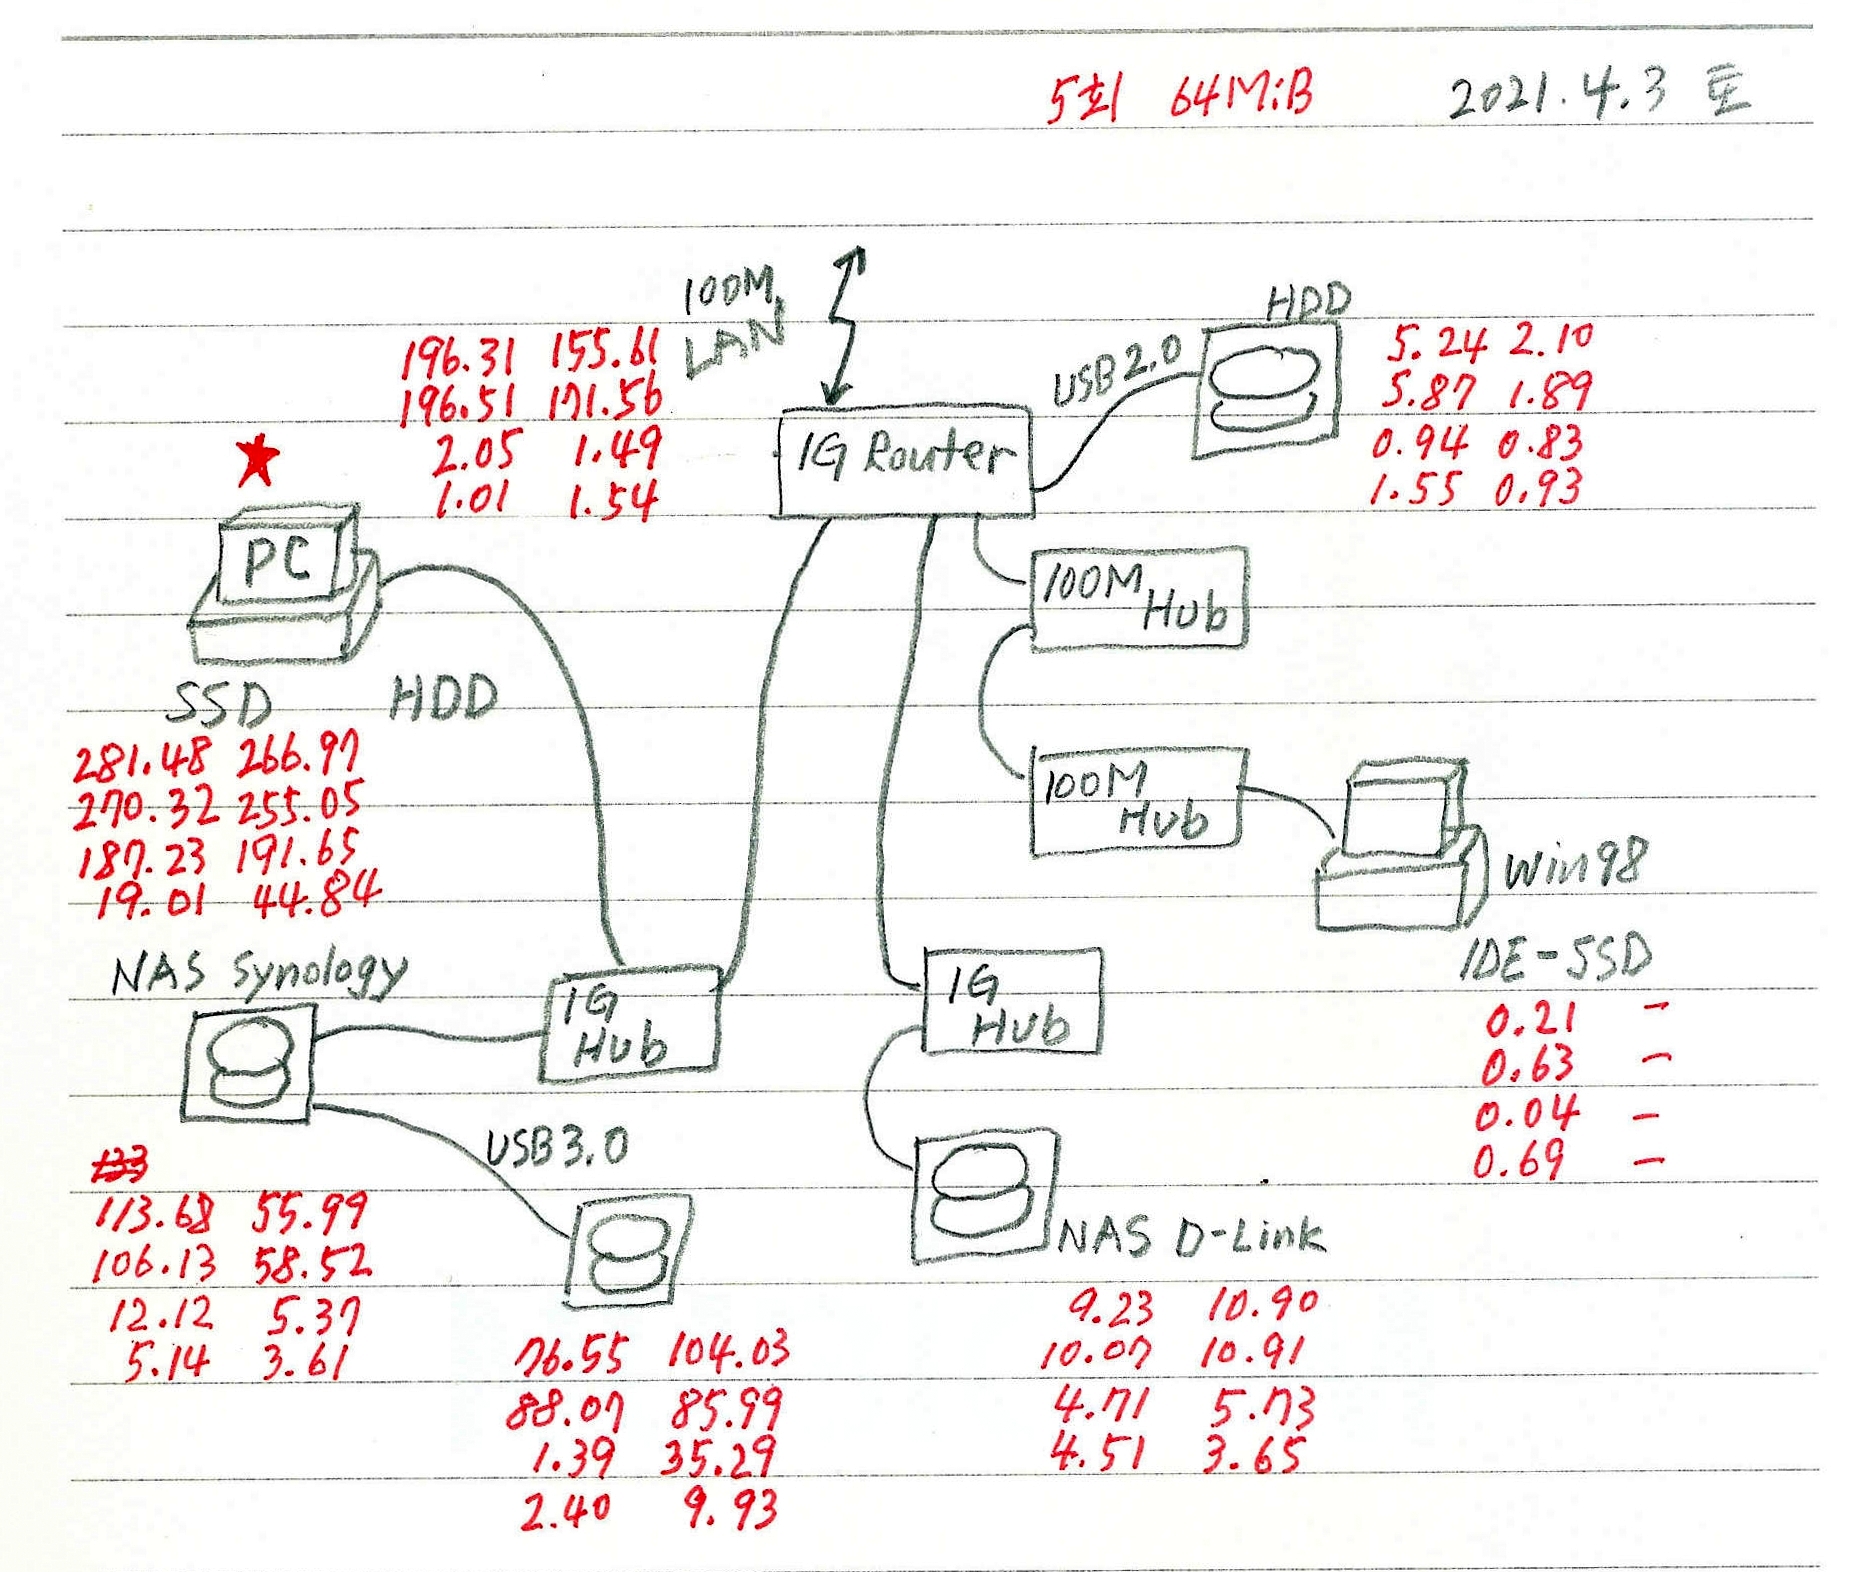 5회 64MiB 2021.4.3 토
100M
LAN
HDD
USB2.0
5.24 2.10
5.87 1.89
0.94 0.83
1.55 0.93
196.31 155.61
196.51 171.56
2.05 1.49
1.01 1.54
1G Router
PC
100M
Hub
SSD HDD
281.48 266.97
270.32 255.05
187.23 191.65
19.01 44.84
100M
Hub
Win98
IDE-SSD
0.21 -
0.63 -
0.04 -
0.69 -
NAS Synology
1G
Hub
1G
Hub
USB3.0
113.68 55.99
106.13 58.52
12.12 5.37
5.14 3.61
NAS D-Link
9.23 10.90
10.07 10.91
4.71 5.73
4.51 3.65
76.55 104.03
88.07 85.99
1.39 35.29
2.40 9.93